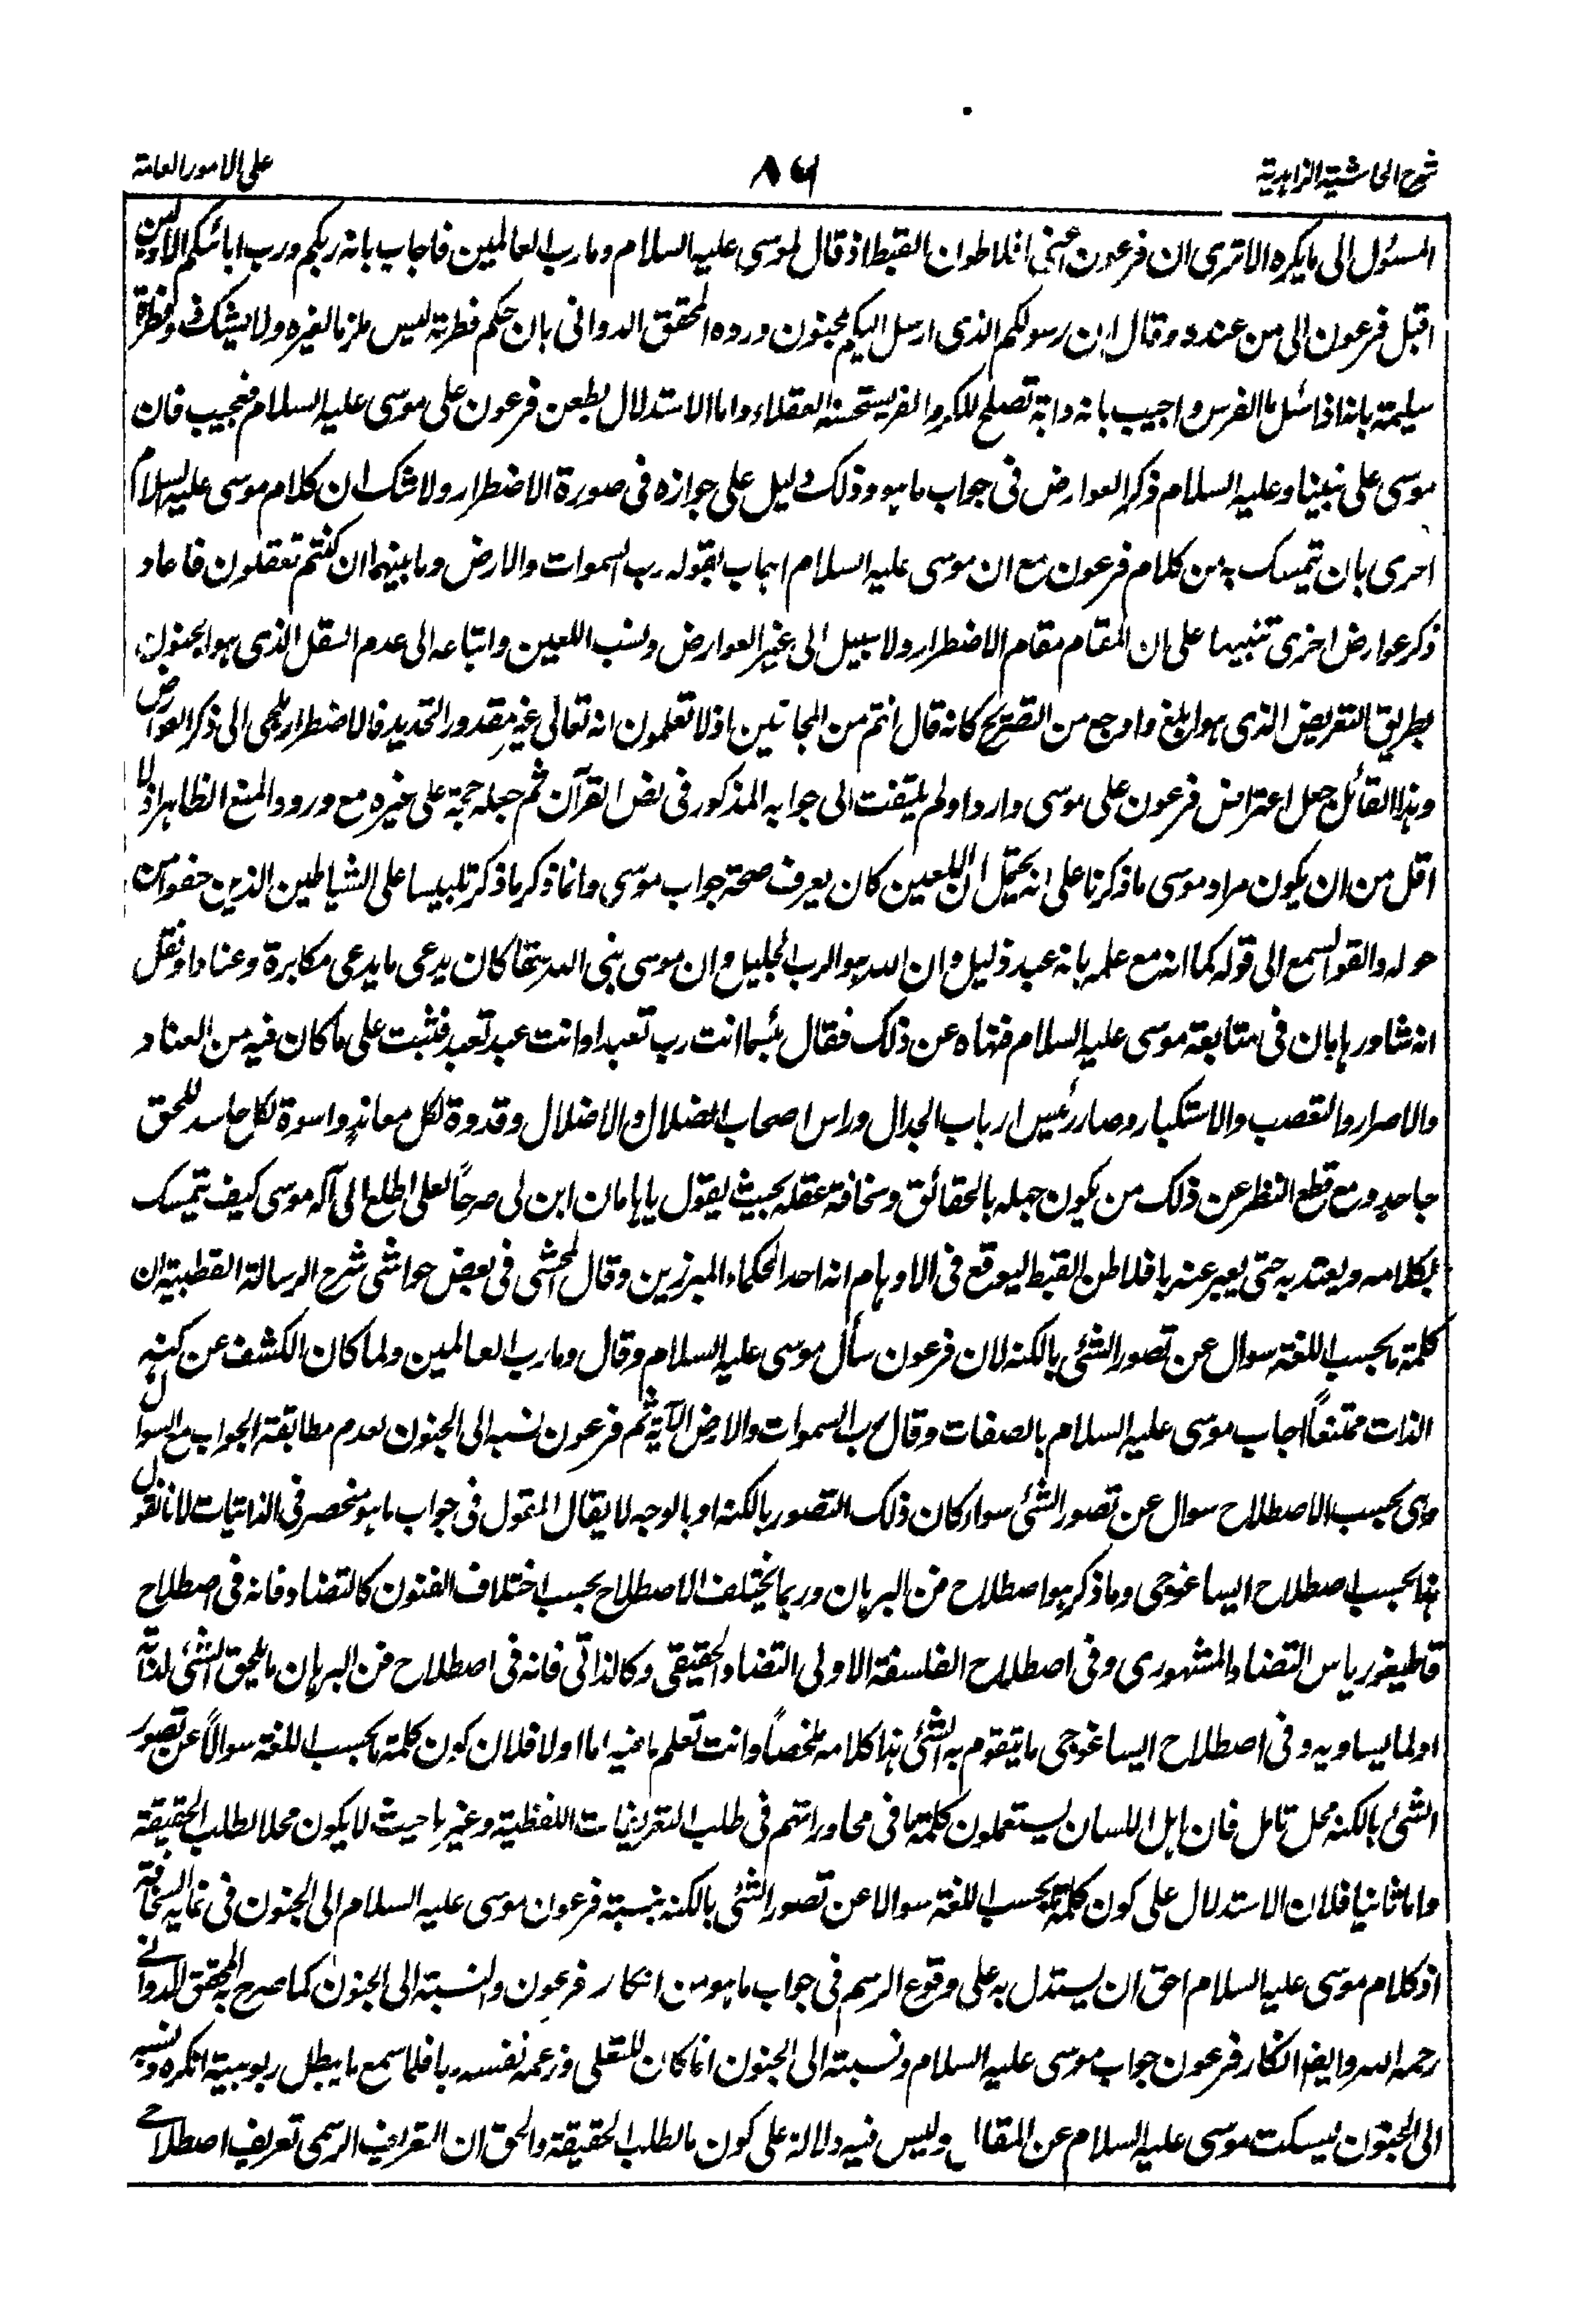 شرح الحاشية الزاهدية
٨٦
على الامور العامة
المسئول الى ما يكره الا ترى ان فرعون اعنى افلاطون القبط اذ قال لموسى عليه السلام وما رب العالمين فاجاب بانه ربكم ورب ابائكم الاولين
اقبل فرعون الى من عنده وقال ان رسولكم الذى ارسل اليكم لمجنون ورده المحقق الدوانى بان حكم فطرته ليس ملزما لغيره ولا يشك ذو فطرة
سليمة بانه اذا سئل ما الفرس واجيب بانه دابة تصلح للكر والفر يستحسنه العقلاء واما الاستدلال بطعن فرعون على موسى عليه السلام فعجيب فان
موسى على نبينا وعليه السلام ذكر العوارض فى جواب ما هو وذلك دليل على جوازه فى صورة الاضطرار ولا شك ان كلام موسى عليه السلام
احرى بان تمسك به من كلام فرعون مع ان موسى عليه السلام اجاب بقوله رب السموات والارض وما بينهما ان كنتم تعقلون فاعاد
ذكر عوارض اخرى تنبيها على ان المقام مقام الاضطرار ولا سبيل الى غير العوارض ونسب اللعين واتباعه الى عدم العقل الذى هو الجنون
بطريق التعريض الذى هو ابلغ واوجع من التصريح كانه قال انتم من المجانين اذ لا تعلمون انه تعالى غير مقدور التحديد فالاضطرار يلجى الى ذكر العوارض
وهذا القائل جعل اعتراض فرعون على موسى واردا ولم يلتفت الى جوابه المذكور فى نص القرآن ثم جعله حجة على غيره مع ورود المنع الظاهر اذ لا
اقل من ان يكون مراد موسى ما ذكرنا على انه يحتمل ان اللعين كان يعرف صحة جواب موسى وانما ذكر ما ذكر تلبيسا على الشياطين الذين حفوا من
حوله والقوا السمع الى قوله كما انه مع علمه بانه عبد ذليل وان الله هو الرب الجليل وان موسى نبى الله حقا كان يدعى ما يدعى مكابرة وعنادا ونقل
انه شاور هامان فى متابعة موسى عليه السلام فنهاه عن ذلك فقال بئسما انت رب تعبد او انت عبد تعبد فثبت على ما كان فيه من العناد
والاصرار والتعصب والاستكبار وصار رئيس ارباب الجدال وراس اصحاب الضلال والاضلال وقدوة لكل معاند واسوة لكل حاسد للحق
جاحد ومع قطع النظر عن ذلك من يكون جهله بالحقائق وسخافة عقله بحيث يقول يا هامان ابن لى صرحاً لعلى اطلع الى آله موسى كيف يتمسك
بكلامه ويعتد به حتى يعبر عنه بافلاطن القبط ليوقع فى الاوهام انه احد الحكماء المبرزين وقال المحشى فى بعض حواشى شرح الرسالة القطبية ان
كلمة ما بحسب اللغة سوال عن تصور الشئ بالكنه لان فرعون سأل موسى عليه السلام وقال وما رب العالمين ولما كان الكشف عن كنه
الذات ممتنعاً اجاب موسى عليه السلام بالصفات وقال رب السموات والارض الآية ثم فرعون نسبه الى الجنون لعدم مطابقة الجواب مع السوال
وهى بحسب الاصطلاح سوال عن تصور الشئ سواء كان ذلك التصور بالكنه او بالوجه لا يقال المقول فى جواب ما هو منحصر فى الذاتيات لانا نقول
هذا بحسب اصطلاح ايساغوجى وما ذكر هو اصطلاح فن البرهان وربما يختلف الاصطلاح بحسب اختلاف الفنون كالتضاد فانه فى اصطلاح
قاطيغورياس التضاد المشهورى وفى اصطلاح الفلسفة الاولى التضاد الحقيقى وكالذاتى فانه فى اصطلاح فن البرهان ما يلحق الشئ لذاته
او لما يساويه وفى اصطلاح ايساغوجى ما يتقوم به الشئ هذا كلامه ملخصاً وانت تعلم ما فيه اما اولا فلان كون كلمة ما بحسب اللغة سوالاً عن تصور
الشئ بالكنه محل تامل فان اهل اللسان يستعملون كلمة ما فى محاوراتهم فى طلب التعريفات اللفظية وغيرها حيث لا يكون محلا لطلب الحقيقة
واما ثانيا فلان الاستدلال على كون كلمة ما بحسب اللغة سوالا عن تصور الشئ بالكنه بنسبة فرعون موسى عليه السلام الى الجنون فى غاية السخافة
اذ كلام موسى عليه السلام احق ان يستدل به على وقوع الرسم فى جواب ما هو من انكار فرعون والنسبة الى الجنون كما صرح به المحقق الدوانى
رحمه الله وايضا انكار فرعون جواب موسى عليه السلام ونسبته الى الجنون انما كان للتعلى وزعمه نفسه ربا فلما سمع ما يبطل ربوبيته انكره ونسبه
الى الجنون ليسكت موسى عليه السلام عن المقال وليس فيه دلالة على كون ما لطلب الحقيقة والحق ان التعريف الرسمى تعريف اصطلاحى